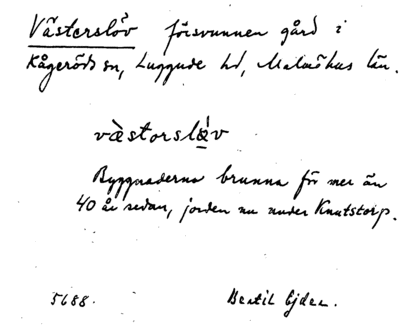 Västerslöv försvunnen gård i
Kågeröds sn, Luggude hd, Malmöhus län.
vä̀storslä́v
Byggnaderna brunna för mer än
40 år sedan, jorden nu under Knutstorp.
5688. Bertil Ejder.